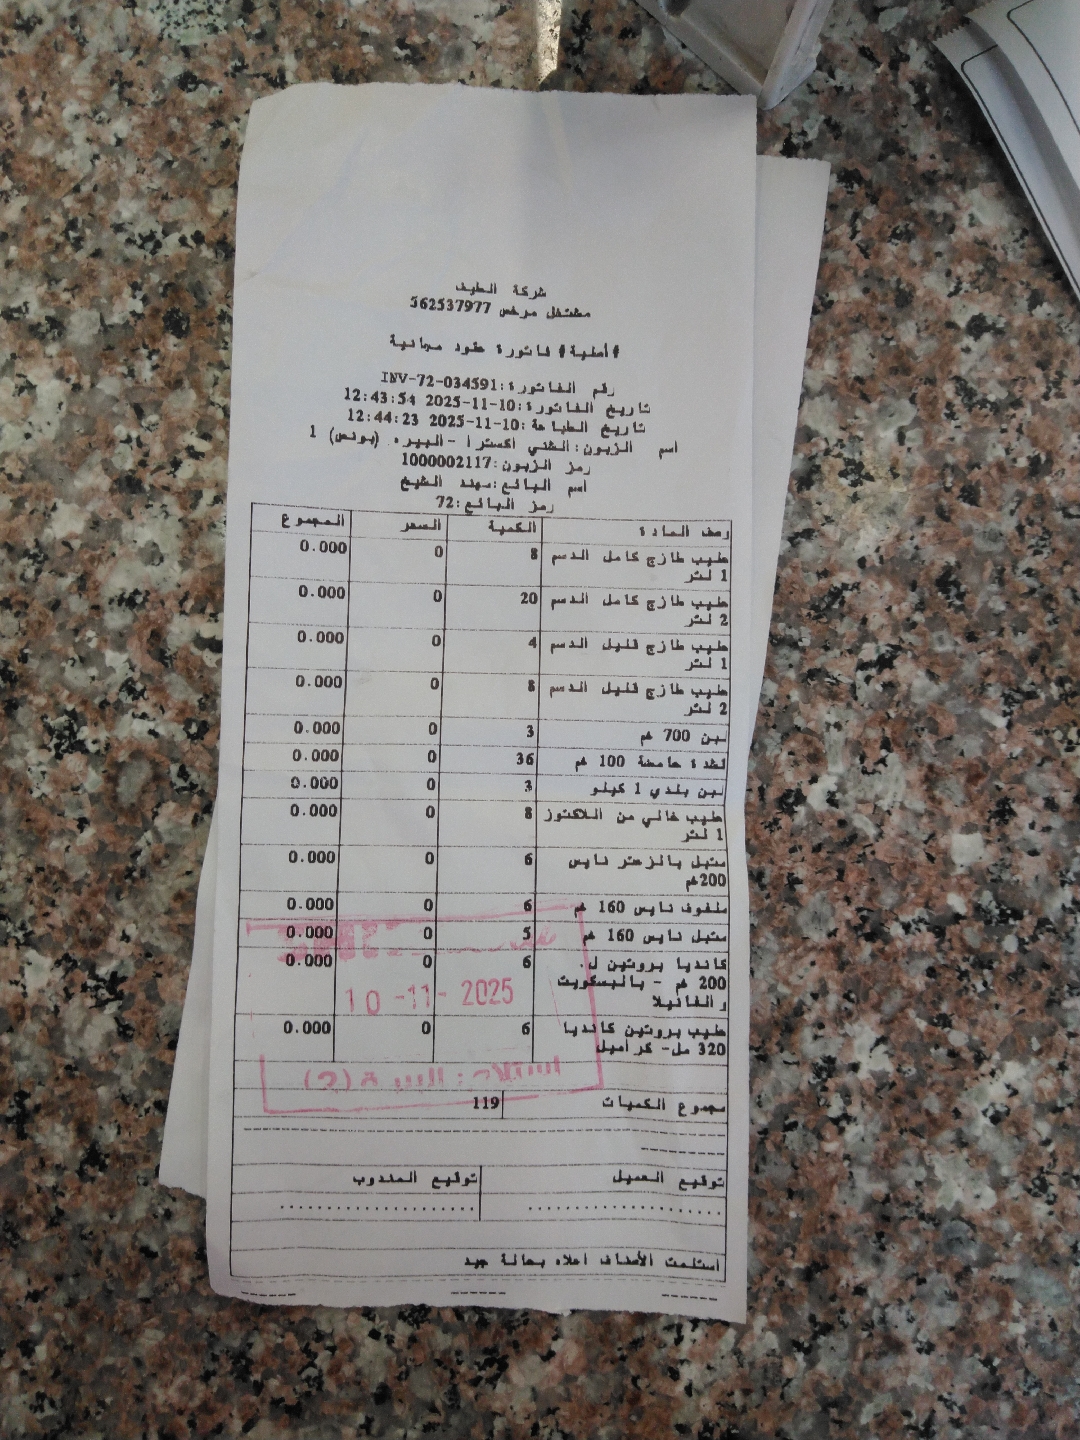 شركة الطيف
مشتغل مرخص 562537977
#أصلية# فاتورة طود مجانية
رقم الفاتورة:INV-72-034591
تاريخ الفاتورة:10-11-2025 12:43:54
تاريخ الطباعة:10-11-2025 12:44:23
اسم الزبون:الشني اكسترا -البيره (بونص) 1
رمز الزبون:1000002117
اسم البائع:مهند الشيخ
رمز البائع:72
وصف المادة الكمية السعر المجموع
حليب طازج كامل الدسم 8 0 0.000
1 لتر
حليب طازج كامل الدسم 20 0 0.000
2 لتر
حليب طازج قليل الدسم 4 0 0.000
1 لتر
حليب طازج قليل الدسم 8 0 0.000
2 لتر
لبن 700 غم 3 0 0.000
قشدة حامضة 100 غم 36 0 0.000
لبن بلدي 1 كيلو 3 0 0.000
حليب خالي من اللاكتوز 8 0 0.000
1 لتر
متبل بالزعتر نايس 6 0 0.000
200غم
ملفوف نايس 160 غم 6 0 0.000
متبل نايس 160 غم 5 0 0.000
كانديا بروتين ل 6 0 0.000
200 غم - بالبسكويت
والفانيلا
حليب بروتين كانديا 6 0 0.000
320 مل- كراميل
10 -11- 2025
مجموع الكميات 119
توقيع العميل توقيع المندوب
استلمت الأصناف اعلاه بحالة جيد